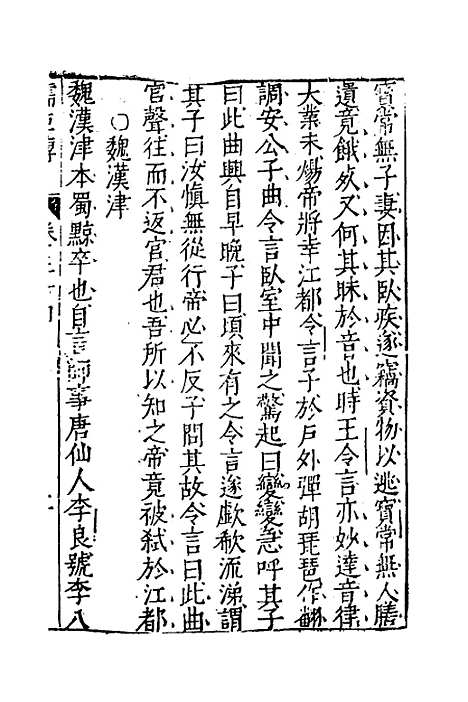 寳常無子妻因其臥疾遂竊資物以逃寳常無人贍
遺竟餓死又何其昧於音也時王令言亦妙達音律
大業末煬帝將幸江都令言子於戶外彈胡琵琶作翻
調安公子曲令言臥室中聞之驚起曰變變急呼其子
曰此曲興自早晚子曰頃來有之令言遂歔欷流涕謂
其子曰汝慎無從行帝必不反子問其故令言曰此曲
宮聲往而不返宮君也吾所以知之帝竟被弒於江都
○魏漢津
魏漢津本蜀黥卒也自言師事唐仙人李良號李八